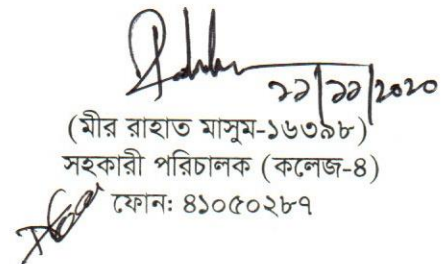 ২২/১১/২০২০
(মীর রাহাত মাসুম-১৬৩৯৮)
সহকারী পরিচালক (কলেজ-৪)
ফোন: ৪১০৫০২৮৭